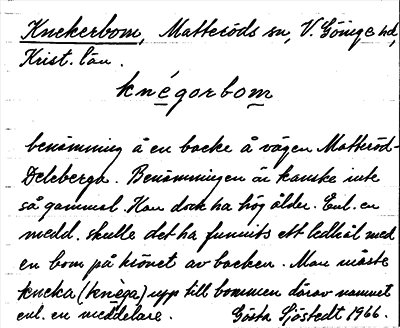 Knekerbom, Matteröds sn, V. Göinge hd,
Krist. län.
knégorbom
benämning å en backe å vägen Matteröd-
Deleberga. Benämningen är kanske inte
så gammal. Kan dock ha hög ålder. Enl. en
medd. skulle det ha funnits ett ledhål med
en bom på krönet av backen. Man måste
kneka (knèga) upp till bommen därav namnet
enl. en meddelare. Gösta Sjöstedt 1966.